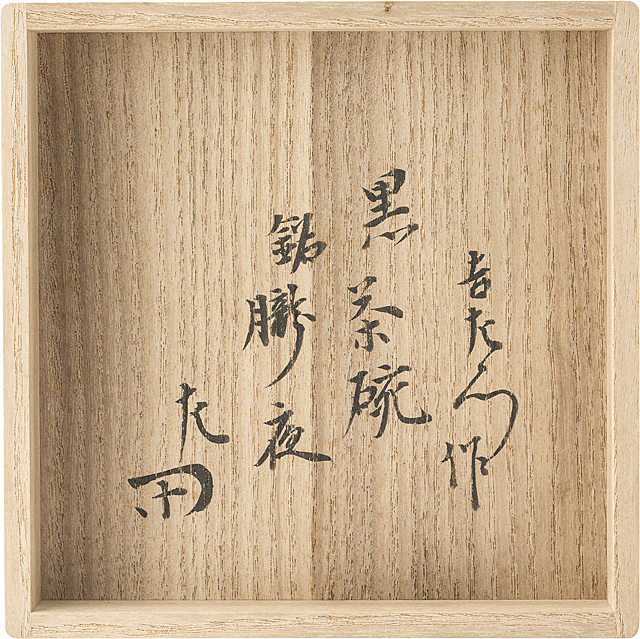 吉左衛門作
黒茶碗
銘朧夜
左